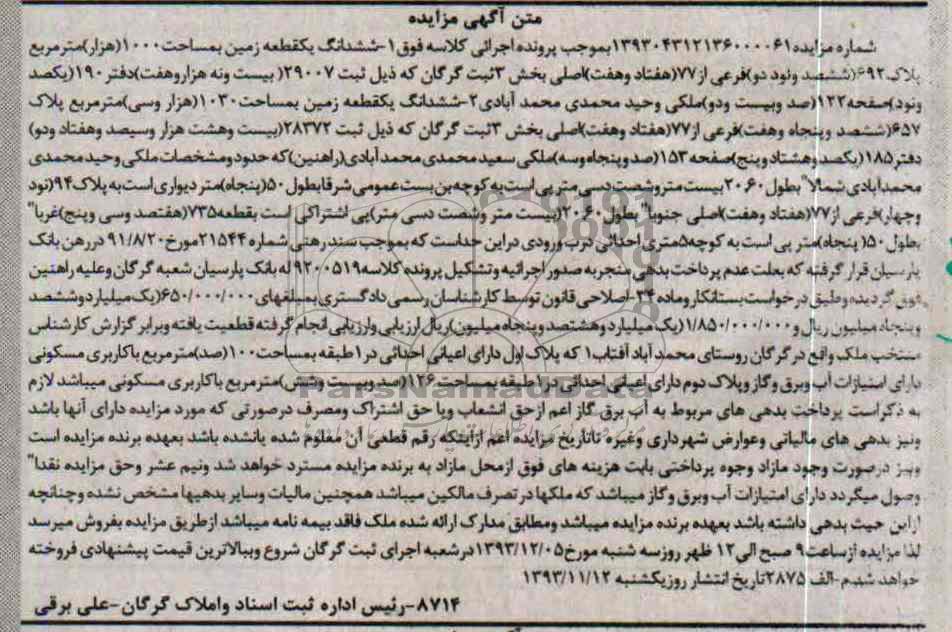 متن آگهی مزایده
شماره مزایده ۱۳۹۳۰۴۳۱۲۱۳۶۰۰۰۰۶۱بموجب پرونده اجرائی کلاسه فوق۱-ششدانگ یکقطعه زمین بمساحت۱۰۰۰(هزار)مترمربع
پلاک۶۹۲(ششصد ونود دو)فرعی از۷۷(هفتاد وهفت)اصلی بخش ۳ثبت گرگان که ذیل ثبت ۲۹۰۰۷( بیست ونه هزاروهفت)دفتر۱۹۰(یکصد
ونود)صفحه۱۲۲(صد وبیست ودو)ملکی وحید محمدی محمد آبادی۲-ششدانگ یکقطعه زمین بمساحت۱۰۳۰(هزار وسی)مترمربع پلاک
۶۵۷(ششصد وپنجاه وهفت)فرعی از۷۷(هفتاد وهفت)اصلی بخش ۳ثبت گرگان که ذیل ثبت ۲۸۳۷۲(بیست وهشت هزار وسیصد وهفتاد ودو)
دفتر۱۸۵(یکصدوهشتادوپنج)صفحه۱۵۳(صدوپنجاه وسه)ملکی سعید محمدی محمد آبادی(راهنین)که حدودومشخصات ملکی وحیدمحمدی
محمدآبادی شمالا" بطول۲۰.۶۰بیست متروشصت دسی متر پی است به کوچه بن بست عمومی شرقابطول ۵۰(پنجاه)متر دیواری است به پلاک۹۴(نود
وچهار)فرعی از۷۷(هفتاد وهفت)اصلی جنوبا" بطول۲۰.۶۰(بیست متر وشصت دسی متر)پی اشتراکی است بقطعه۷۳۵(هفتصد وسی وپنج)غربا"
بطول۵۰( پنجاه)متر پی است به کوچه۵متری احداثی درب ورودی دراین حداست که بموجب سند رهنی شماره۲۱۵۴۴مورخ۹۱/۸/۲۰ دررهن بانک
پارسیان قرار گرفته که بعلت عدم پرداخت بدهی منجر به صدور اجرائیه وتشکیل پرونده کلاسه۹۲۰۰۵۱۹له بانک پارسیان شعبه گرگان وعلیه راهنین
فوق گردیده وطبق درخواست بستانکار وماده ۳۴-اصلاحی قانون توسط کارشناسان رسمی دادگستری بمبلغهای۶۵۰/۰۰۰/۰۰۰(یک میلیاردوششصد
وپنجاه میلیون ریال و۱/۸۵۰/۰۰۰/۰۰۰(یک میلیارد وهشتصد وپنجاه میلیون)ریال ارزیابی وارزیابی انجام گرفته قطعیت یافته وبرابر گزارش کارشناس
منتخب ملک واقع در گرگان روستای محمد آباد آفتاب۱ که پلاک اول دارای اعیانی احداثی در۱طبقه بمساحت۱۰۰(صد)مترمربع باکاربری مسکونی
دارای امتیازات آب وبرق وگاز وپلاک دوم دارای اعیانی احداثی در۱طبقه بمساحت۱۲۶(صد وبیست وشش)مترمربع باکاربری مسکونی میباشد لازم
به ذکراست پرداخت بدهی های مربوط به آب برق گاز اعم ازحق انشعاب ویا حق اشتراک ومصرف درصورتی که مورد مزایده دارای آنها باشد
ونیز بدهی های مالیاتی وعوارض شهرداری وغیره تاتاریخ مزایده اعم ازاینکه رقم قطعی آن معلوم شده یانشده باشد بعهده برنده مزایده است
ونیز درصورت وجود مازاد وجوه پرداختی بابت هزینه های فوق ازمحل مازاد به برنده مزایده مسترد خواهد شد ونیم عشر وحق مزایده نقدا"
وصول میگردد دارای امتیازات آب وبرق وگاز میباشد که ملکها درتصرف مالکین میباشد همچنین مالیات وسایر بدهیها مشخص نشده وچنانچه
ازاین حیث بدهی داشته باشد بعهده برنده مزایده میباشد ومطابق مدارک ارائه شده ملک فاقد بیمه نامه میباشد ازطریق مزایده بفروش میرسد
لذا مزایده ازساعت۹ صبح الی۱۲ ظهر روزسه شنبه مورخ۱۳۹۳/۱۲/۰۵درشعبه اجرای ثبت گرگان شروع وببالاترین قیمت پیشنهادی فروخته
خواهد شد.م-الف ۲۸۷۵تاریخ انتشار روزیکشنبه ۱۳۹۳/۱۱/۱۲
۸۷۱۴-رئیس اداره ثبت اسناد واملاک گرگان-علی برقی
ParsNamadData